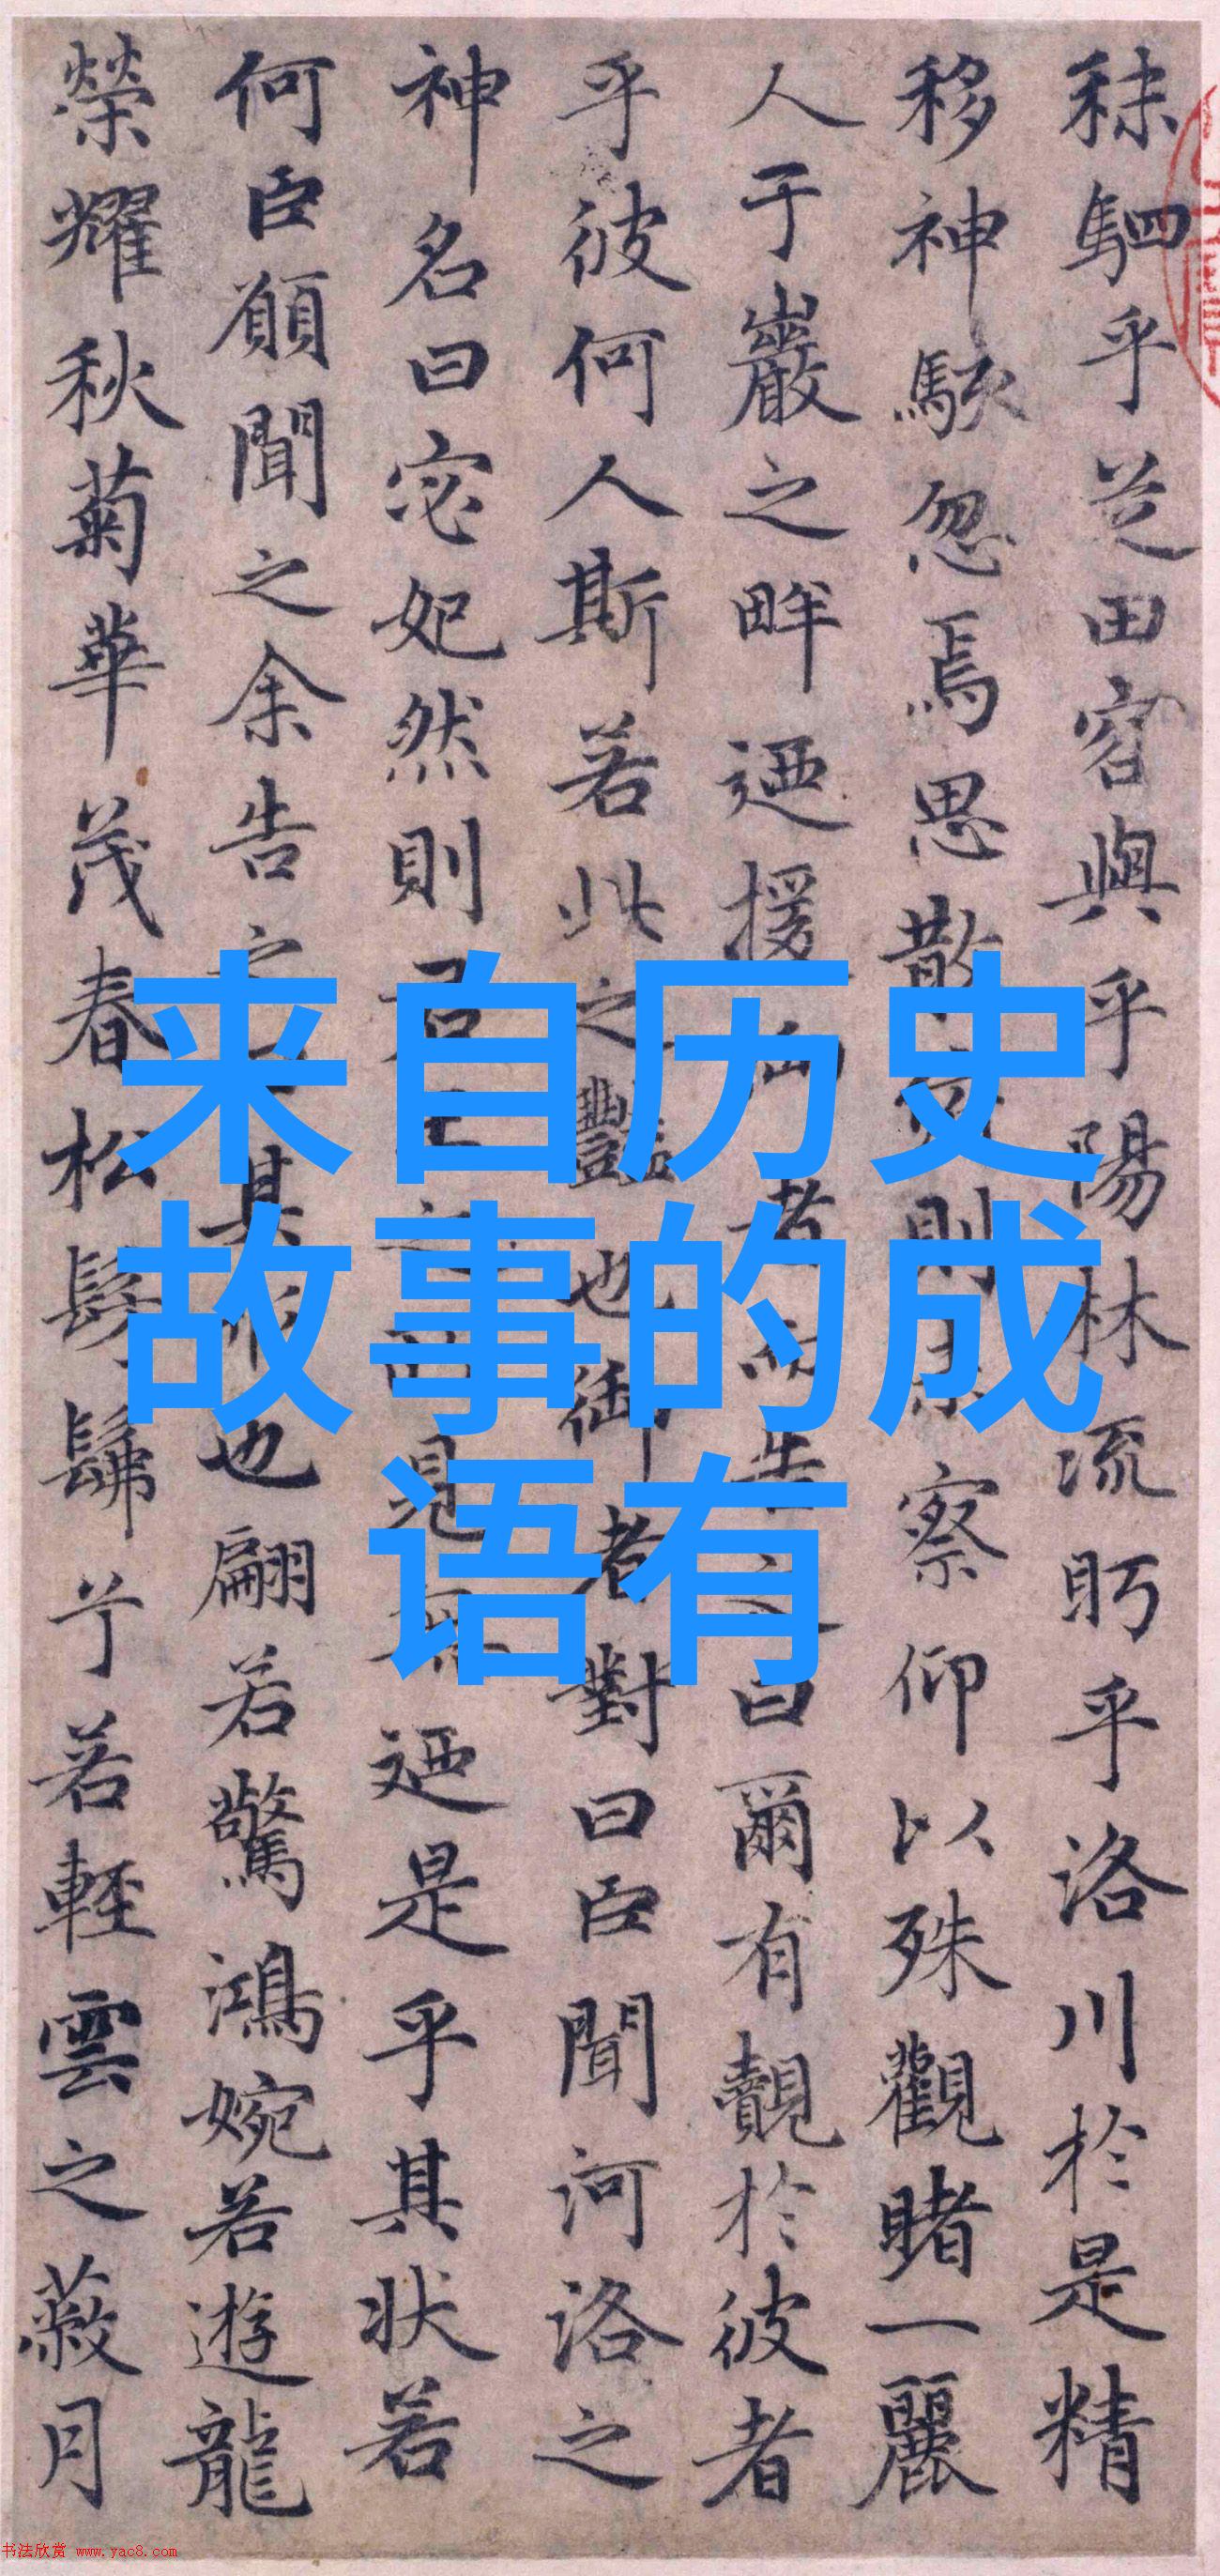 秣駟乎芝田容與乎陽林流眄乎洛川於是精
移神駭忽焉思散則察仰以殊觀睹一麗
人于巖之畔迺援者告之曰爾有覿於彼者
乎彼何人斯若此之豔也御者對曰臣聞河洛之
神名曰宓妃然則君王之見無迺是乎其狀若
何臣願聞之余告之其也翩若驚鴻婉若遊龍
榮耀秋菊華茂春松髣髴兮若輕雲之蔽月
来自历史
故事的成
语有
书法欣赏 www.yac8.com